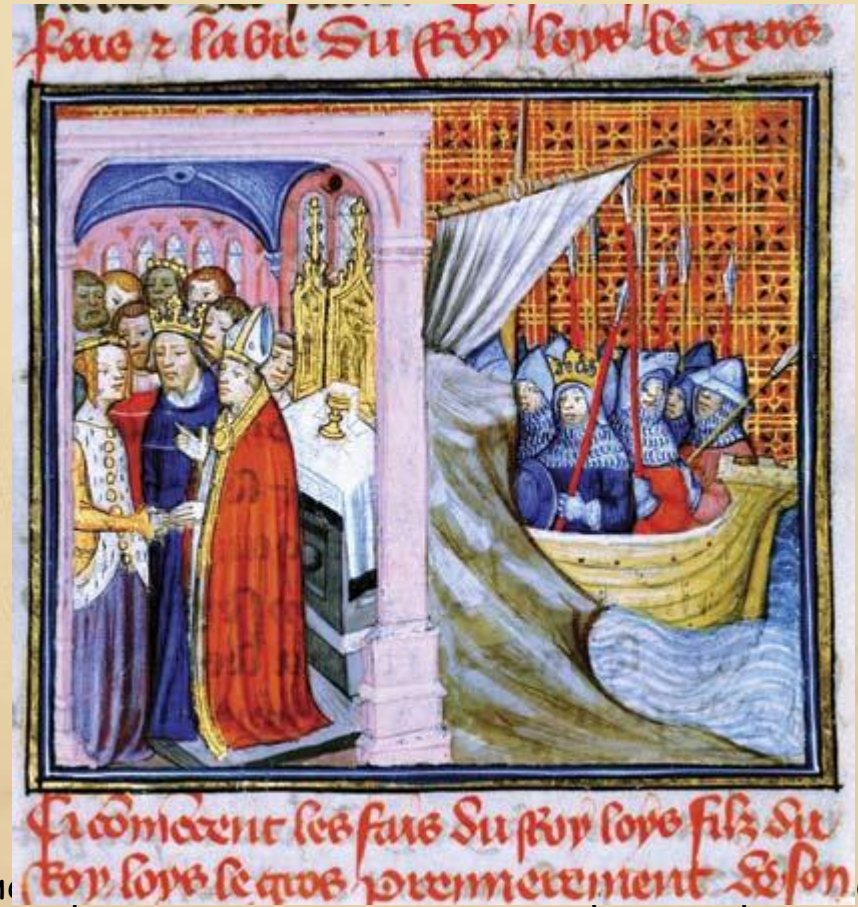 fais ⁊ la vie du Roy loys le gros
Ci cõmẽcent les fais du Roy loys filz du
Roy loys le gros premierement de son